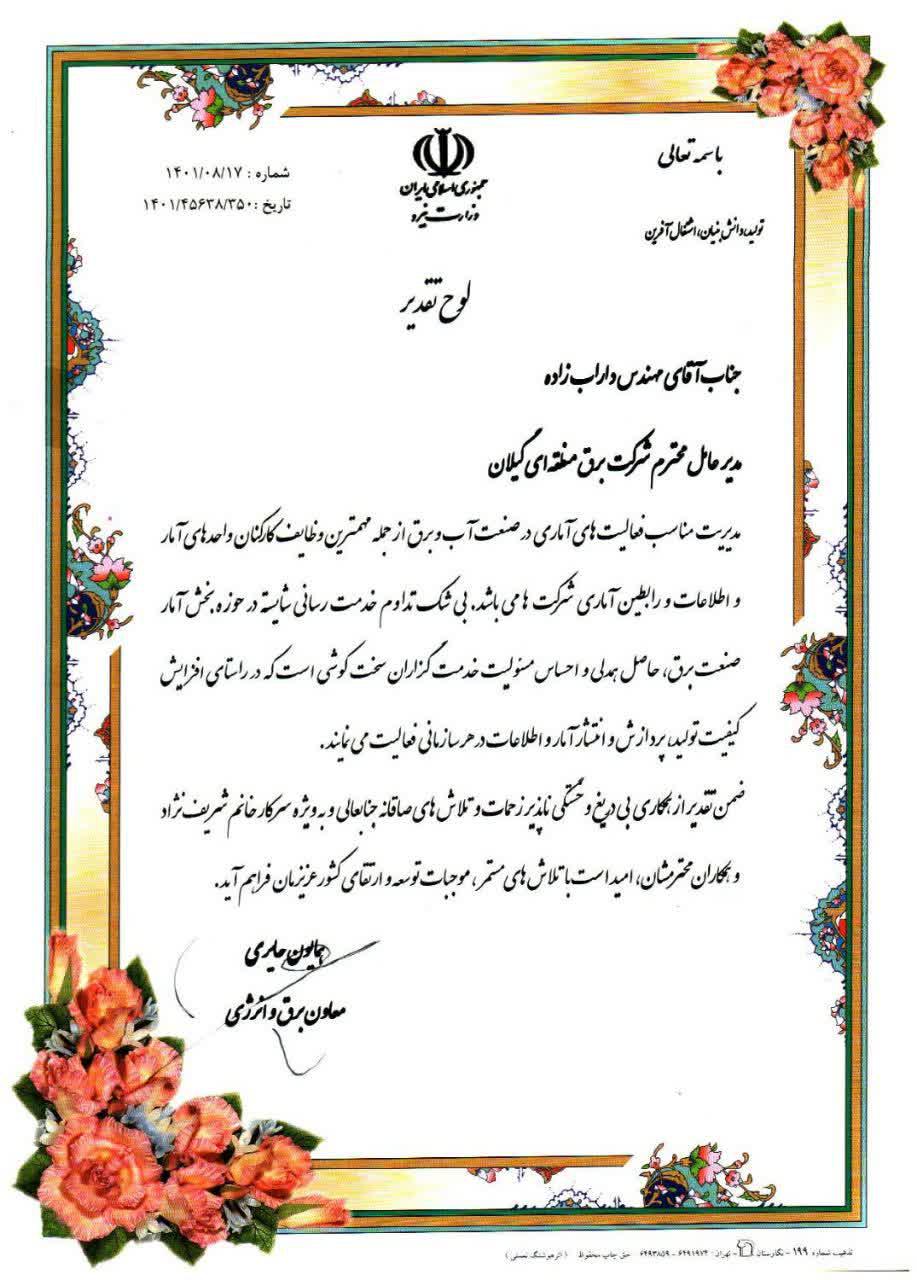 باسمه تعالی
تولید، دانش بنیان، اشتغال آفرین
جمهوری اسلامی ایران
وزارت نیرو
شماره : ۱۴۰۱/۰۸/۱۷
تاریخ : ۱۴۰۱/۴۵۶۳۸/۳۵۰
لوح تقدیر
جناب آقای مهندس داراب زاده
مدیر عامل محترم شرکت برق منطقه ای گیلان
مدیریت مناسب فعالیت های آماری در صنعت آب و برق از جمله مهمترین وظایف کارکنان واحدهای آمار
و اطلاعات و رابطین آماری شرکت ها می باشد. بی شک تداوم خدمت رسانی شایسته در حوزه بخش آمار
صنعت برق، حاصل همدلی و احساس مسئولیت خدمت گزاران سخت کوشی است که در راستای افزایش
کیفیت تولید، پردازش و انتشار آمار و اطلاعات در هر سازمانی فعالیت می نمایند.
ضمن تقدیر از همکاری بی دریغ و خستگی ناپذیر زحمات و تلاش های صادقانه جنابعالی و به ویژه سرکار خانم شریف نژاد
و همکاران محترمشان، امید است با تلاش های مستمر، موجبات توسعه و ارتقای کشور عزیزمان فراهم آید.
همایون حایری
معاون برق و انرژی
تذهیب شماره ۱۹۹ - نگارستان - تهران: ۶۴۹۱۹۷۴ - ۶۴۹۳۸۵۹ حق چاپ محفوظ